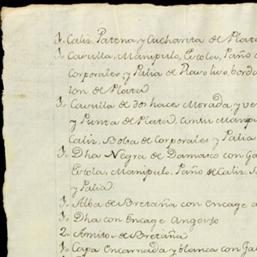 1„ Caliz, Patena, y Cucharita de Plata
1„ Casulla, Manipulo, Estola, Paño d
Corporales, y Palia de Raso liso, bord
con de Plata
1„ Casulla de dos haces Morada, y ve
y Punta de Plata, con su Manip
Caliz, Bolsa de Corporales y Palia
1„ Dha Negra de Damasco con Ga
Estola, Manipulo, Paño de Caliz,
y Palia
1„ Alba de Bretaña con Encage a
1„ Dha con Encage Angosto
2„ Amitos de Bretaña
1„ Capa Encarnada y blanca con Ga